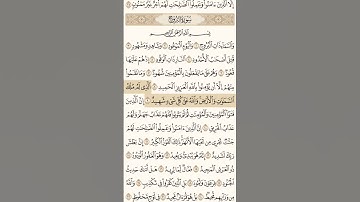 إِلَّا ٱلَّذِينَ ءَامَنُوا۟ وَعَمِلُوا۟ ٱلصَّـٰلِحَـٰتِ لَهُمْ أَجْرٌ غَيْرُ مَمْنُونٍۭ ٢٥
سُورَةُ البُرُوجِ
بِسْمِ ٱللَّهِ ٱلرَّحْمَـٰنِ ٱلرَّحِيمِ
وَٱلسَّمَآءِ ذَاتِ ٱلْبُرُوجِ ١ وَٱلْيَوْمِ ٱلْمَوْعُودِ ٢ وَشَاهِدٍ وَمَشْهُودٍ ٣
قُتِلَ أَصْحَـٰبُ ٱلْأُخْدُودِ ٤ ٱلنَّارِ ذَاتِ ٱلْوَقُودِ ٥ إِذْ هُمْ عَلَيْهَا
قُعُودٌ ٦ وَهُمْ عَلَىٰ مَا يَفْعَلُونَ بِٱلْمُؤْمِنِينَ شُهُودٌ ٧ وَمَا نَقَمُوا۟
مِنْهُمْ إِلَّآ أَن يُؤْمِنُوا۟ بِٱللَّهِ ٱلْعَزِيزِ ٱلْحَمِيدِ ٨ ٱلَّذِى لَهُۥ مُلْكُ
ٱلسَّمَـٰوَٰتِ وَٱلْأَرْضِ وَٱللَّهُ عَلَىٰ كُلِّ شَىْءٍ شَهِيدٌ ٩ إِنَّ ٱلَّذِينَ
فَتَنُوا۟ ٱلْمُؤْمِنِينَ وَٱلْمُؤْمِنَـٰتِ ثُمَّ لَمْ يَتُوبُوا۟ فَلَهُمْ عَذَابُ جَهَنَّمَ وَلَهُمْ
عَذَابُ ٱلْحَرِيقِ ١٠ إِنَّ ٱلَّذِينَ ءَامَنُوا۟ وَعَمِلُوا۟ ٱلصَّـٰلِحَـٰتِ لَهُمْ
جَنَّـٰتٌ تَجْرِى مِن تَحْتِهَا ٱلْأَنْهَـٰرُ ذَٰلِكَ ٱلْفَوْزُ ٱلْكَبِيرُ ١١ إِنَّ بَطْشَ
رَبِّكَ لَشَدِيدٌ ١٢ إِنَّهُۥ هُوَ يُبْدِئُ وَيُعِيدُ ١٣ وَهُوَ ٱلْغَفُورُ ٱلْوَدُودُ ١٤
ذُو ٱلْعَرْشِ ٱلْمَجِيدُ ١٥ فَعَّالٌ لِّمَا يُرِيدُ ١٦ هَلْ أَتَىٰكَ حَدِيثُ
ٱلْجُنُودِ ١٧ فِرْعَوْنَ وَثَمُودَ ١٨ بَلِ ٱلَّذِينَ كَفَرُوا۟ فِى تَكْذِيبٍ ١٩ وَٱللَّهُ
مِن وَرَآئِهِم مُّحِيطٌۢ ٢٠ بَلْ هُوَ قُرْءَانٌ مَّجِيدٌ ٢١ فِى لَوْحٍ مَّحْفُوظٍۭ ٢٢